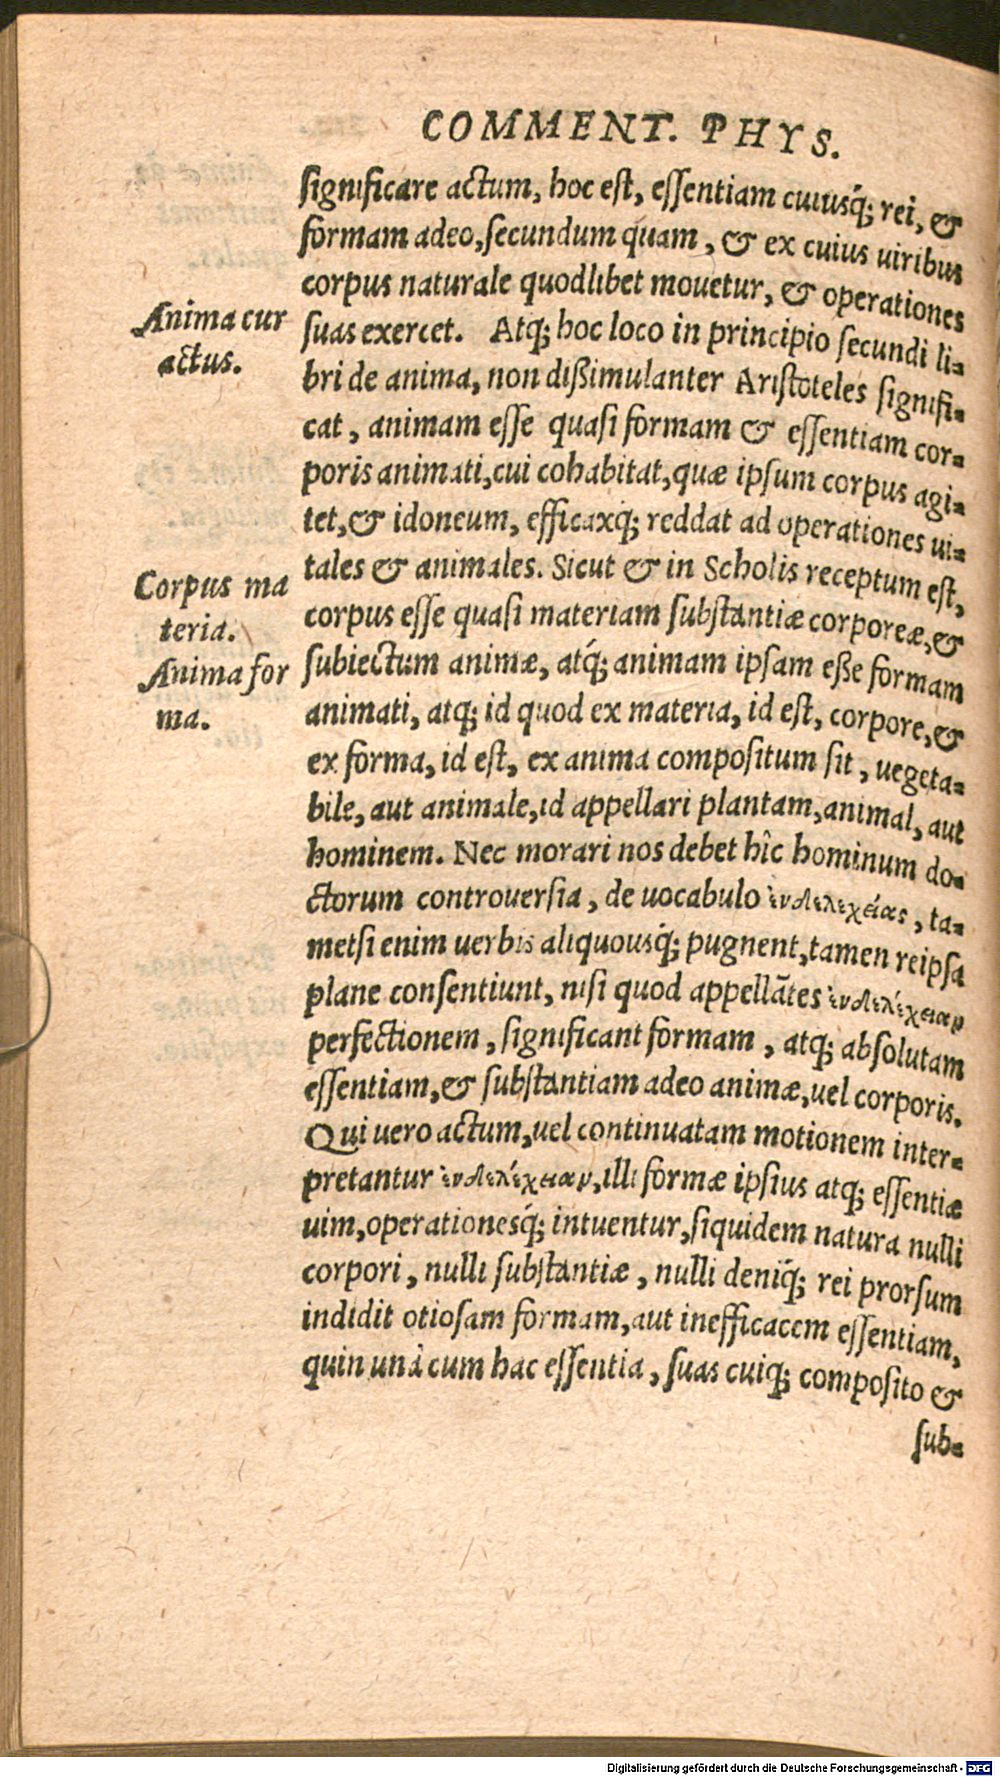 COMMENT. PHYS.
significare actum, hoc est, essentiam cuiusq́; rei, &
formam adeo, secundum quam, & ex cuius uiribus
corpus naturale quodlibet mouetur, & operationes
Anima cur
actus.
suas exercet. Atq; hoc loco in principio secundi li-
bri de anima, non dißimulanter Aristoteles signifi-
cat, animam esse quasi formam & essentiam cor-
poris animati, cui cohabitat, quæ ipsum corpus agi-
tet, & idoneum, efficaxq; reddat ad operationes ui-
tales & animales. Sicut & in Scholis receptum est,
Corpus ma
teria.
Anima for
ma.
corpus esse quasi materiam substantiæ corporeæ, &
subiectum animæ, atq́; animam ipsam eße formam
animati, atq; id quod ex materia, id est, corpore, &
ex forma, id est, ex anima compositum sit, uegeta-
bile, aut animale, id appellari plantam, animal, aut
hominem. Nec morari nos debet hîc hominum do-
ctorum controuersia, de uocabulo ἐνδελεχείας, ta-
metsi enim uerbis aliquousq́; pugnent, tamen reipsa
plane consentiunt, nisi quod appellātes ἐνδελέχειαν
perfectionem, significant formam, atq; absolutam
essentiam, & substantiam adeo animæ, uel corporis.
Qui uero actum, uel continuatam motionem inter-
pretantur ἐνδελέχειαν, illi formæ ipsius atq; essentiæ
uim, operationesq́; intuentur, siquidem natura nulli
corpori, nulli substantiæ, nulli deniq́; rei prorsum
indidit otiosam formam, aut inefficacem essentiam,
quin unà cum hac essentia, suas cuiq; composito &
sub-
Digitalisierung gefördert durch die Deutsche Forschungsgemeinschaft - DFG